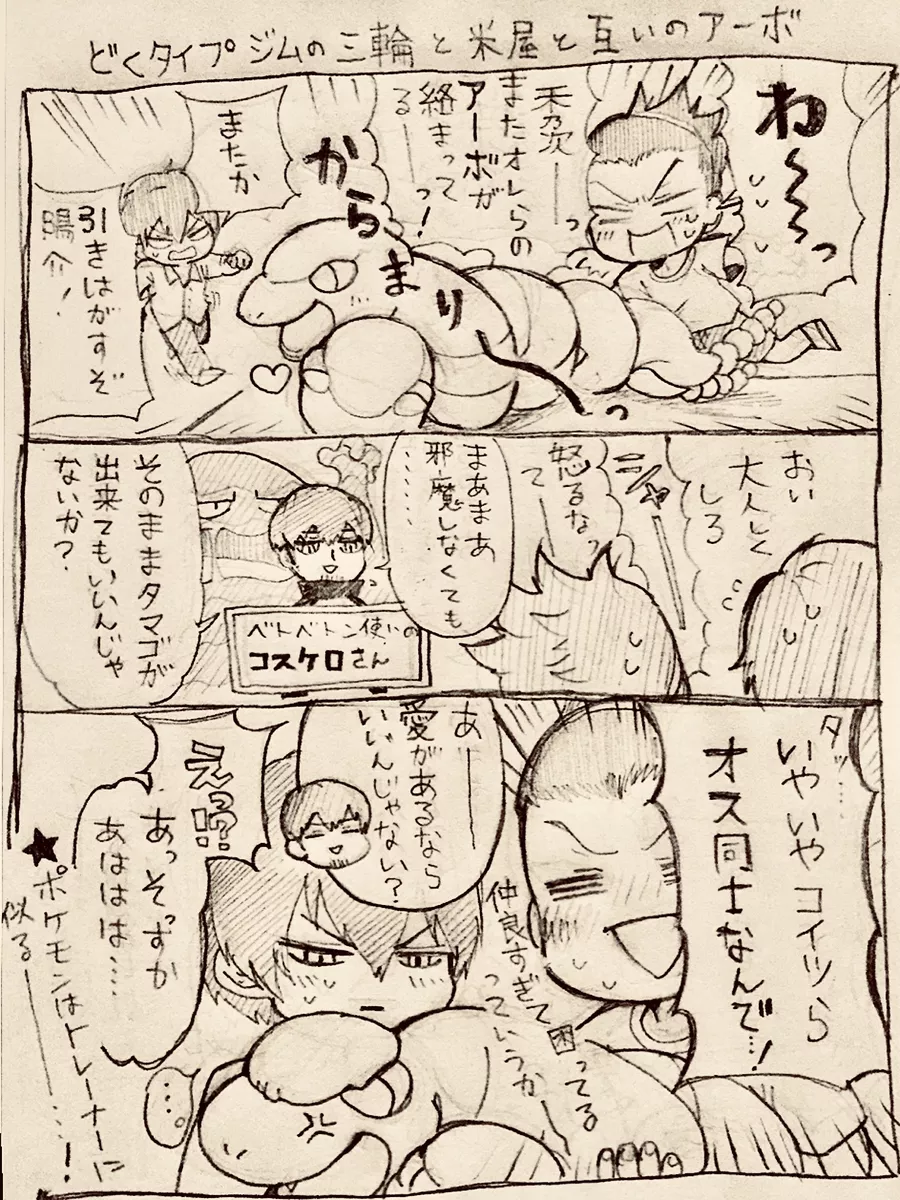 どくタイプジムの三輪と米屋と互いのアーボ
ね〜〜〜っ
またオレらの
アーボが
絡まって
る——っ!
からまりっ
またか
引きはがすぞ
陽介!
おい
大人しく
しろ
怒るなって——
まあまあ
邪魔しなくても
……
ベトベトン使いの
コスケロさん
そのままタマゴが
出来てもいいんじゃ
ないか?
いやいやコイツら
オス同士なんで…!
仲良すぎて困ってる
っていうか
あ——
愛があるなら
いいんじゃない?
え!?
あっそっすか
あははは……
…
★ポケモンはトレーナーに
似る————…!